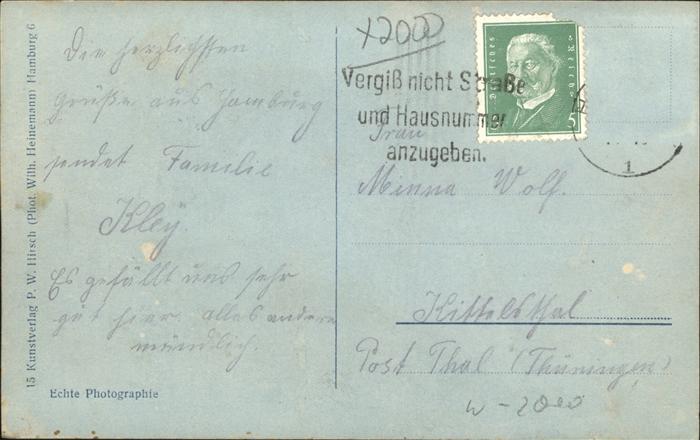 Die herzlichsten
Grüße aus Hamburg
sendet Familie
Kley.
Es gefällt uns sehr
gut hier. alles andere
mündlich.
Echte Photographie
15 Kunstverlag P. W. Hirsch (Phot. Wilh. Heinemann) Hamburg 6
x2000
Vergiß nicht Straße
und Hausnummer
anzugeben.
Deutsches Reich
5
1
Frau
Minna Wolf.
Kittelsthal
Post Thal (Thüringen)
W-2000